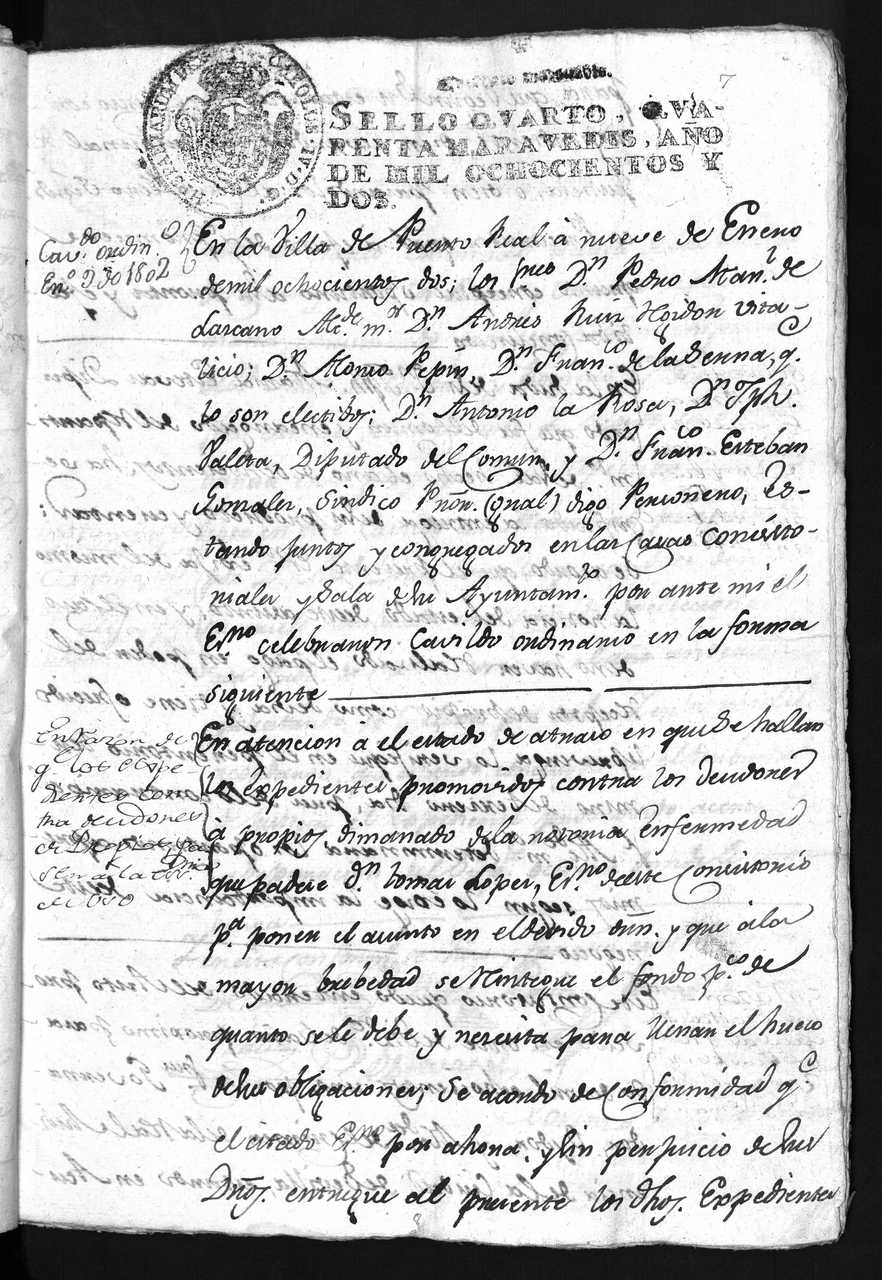 7
HISPANIARUM REX CAROLUS IV D. G.
SELLO QVARTO, QVA-
RENTA MARAVEDIS, AÑO
DE MIL OCHOCIENTOS Y
DOS.
Cav.do ordin.o
En.o 9 de 1802
En la Villa de Puerto Real à nueve de Enero
de mil ochocientos dos; los s.res D.n Pedro Man.l de
Larcano Alc.de m.or D.n Andres Ruiz Hordon vita-
licio; D.n Alonso Pepin, D.n Fran.co de la Serna, q.e
lo son electivos; D.n Antonio la Rosa, D.n Jph.
Valeta, Diputado del Comun, y D.n Fran.co Esteban
Gonzales, Sindico Prôn. (gnâl) digo Personero, es-
tando juntos y congregados en las Casas Consisto-
riales y Sala de su Ayuntam.to por ante mi el
Es.no celebraron Cavildo ordinario en la forma
siguiente
En razon de
q.e los expe-
dientes con-
tra deudores
de Propios, pa-
sen a la Es.nia
de Cav.do
En atencion á el estado de atraso en que se hallan
los expedientes promovidos contra los deudores
à propios, dimanado de la notoria enfermedad
que padece d.n tomas Lopes, Es.no de este Consistorio
p.a poner el asunto en el devido ôrn. y que à la
mayor brebedad se Rintegre el fondo p.co de
quanto se le debe y necesita para llenar el hueco
de sus obligaciones; Se acordo de Conformidad q.e
el citado Es.no por ahora, y sin perjuicio de sus
Drôs. entregue al presente los dhos. Expedientes